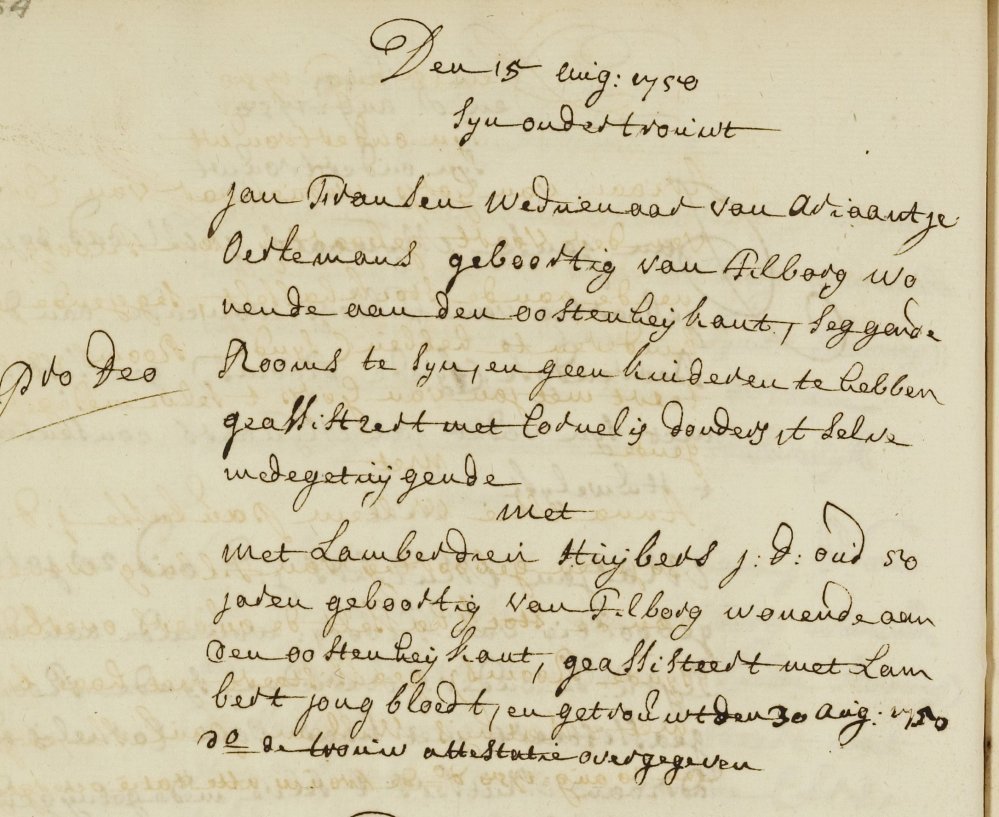 Den 15 Aug: 1750
syn ondertrouwt
Jan Fransen Weduenaar van Adriaantje
Oerlemans geboortig van Tilborg wo
nende aan den oostenheijkant, seggende
Pro Deo
Rooms te syn, en geen kinderen te hebben
geassisteert met Cornelis donders, t selve
medegetuijgende
met
met Lamberdien Huijbers j: d: oud 50
jaren geboortig van Tilborg wonende aan
den oostenheijkant, geassisteert met Lam
bert jongbloedt, en getrouwt den 30 aug: 1750
do de trouw attestatie overgegeven